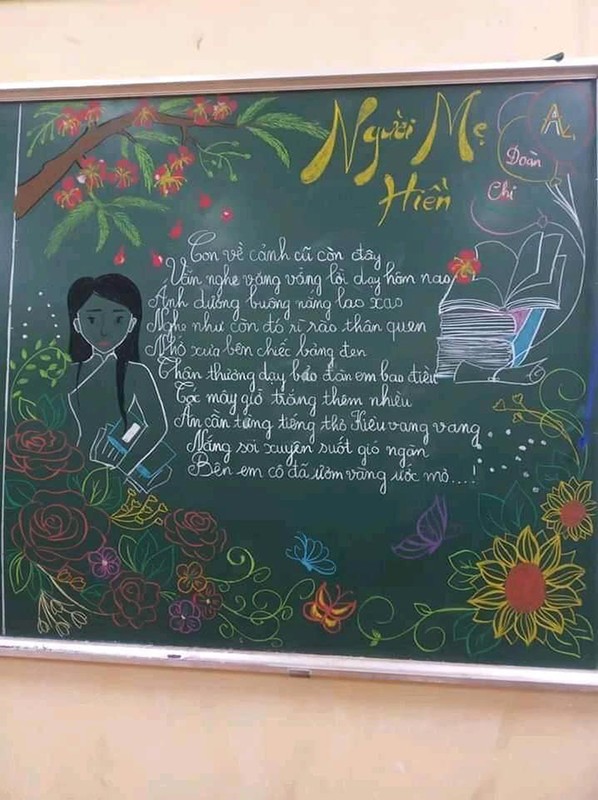 Người Mẹ
Hiền
A
Đoàn
Chi
Con về cảnh cũ còn đây
Vẫn nghe văng vẳng lời dạy hôm nao
Ánh dương buông nắng lao xao
Nghe như còn đó rì rào thân quen
Nhớ xưa bên chiếc bảng đen
Thân thương dạy bảo đàn em bao điều
Tóc mây giờ trắng thêm nhiều
Ân cần từng tiếng thơ Kiều vang vang
Nắng soi xuyên suốt gió ngàn
Bên em cô đã ươm vàng ước mơ....!